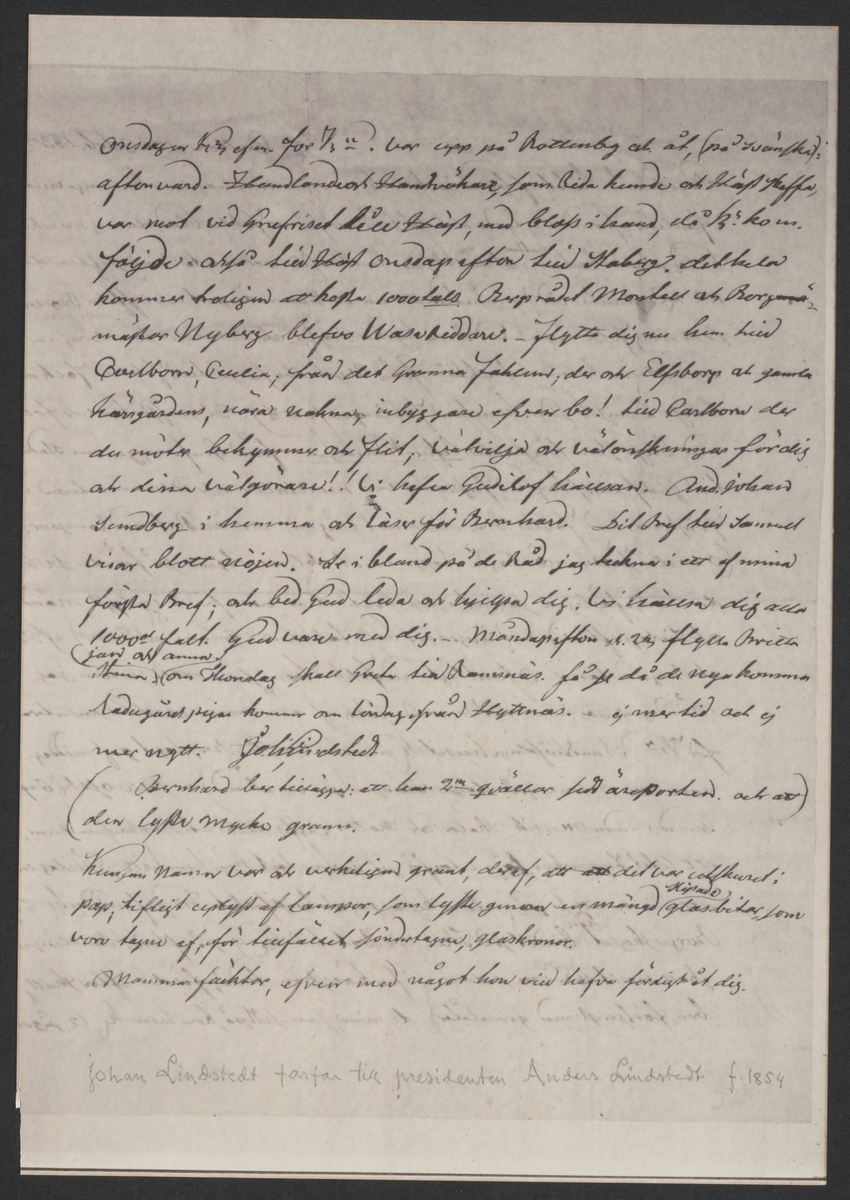 Onsdagen efm. for. var upp på Rottenbg och åt, (på Svänska):
aftonvard. Handlande och Handtvökare, som Rida kunde och Häst skaffa,
var mot vid Grufriset till Häst, med bloss i hand, då kom.
följde också till Häst onsdags afton till Staberg. det hela
kommer troligen att kosta 1000tals Bergsrådet Morstell och Borgmä-
mästar Nyberg blefvo Wasa Riddare. – flytta dig nu hem till
Carlborn, Cecilia, från det Granna Fahlun, der och Elfsborgs och gamla
härsgårdens, nära nakna, inbyggare efven bo! till Carlborn der
du möter bekymmer och flit, välvilja och välönskningar för dig
och dina välgörare!! Vi hafva Gudilof hälsan. And. Johan
Sundberg i hemma och läser för Bernhard. Dit Bref till Samuel
visar blott nöjen. Se i bland på de Råd jag teckna i ett af mina
första Bref; och bed Gud leda och hjelpa dig. Vi hälsa dig alla
1000de falt. Gud vare med dig. – Måndags afton flytta Britta
(jan och anna
Stina) (om Thorsdag skall Greta till Ramsnäs. få se då de nya komma
Ladugårds pigan kommer om lördag från Hyttnäs. ej mer tid och ej
mer nytt. Joh Lindstedt
(Bernhard ber tillägga: att han 2ne qvällar sedt äreporten. och att)
den lyste mycke grann.
Kungens Namn var och verkeligen grant, deraf, att att det var utskuret i
pap, tifligt uplyst af lampor, som lyste genom en mängd (slipade) glasbitar, som
voro tagne af, för tillfället söndertagne, glaskronor.
Mamma fäktar, efven med något hon vill hafva färdigt åt dig.
Johan Lindstedt farfar till presidenten Anders Lindstedt f. 1854